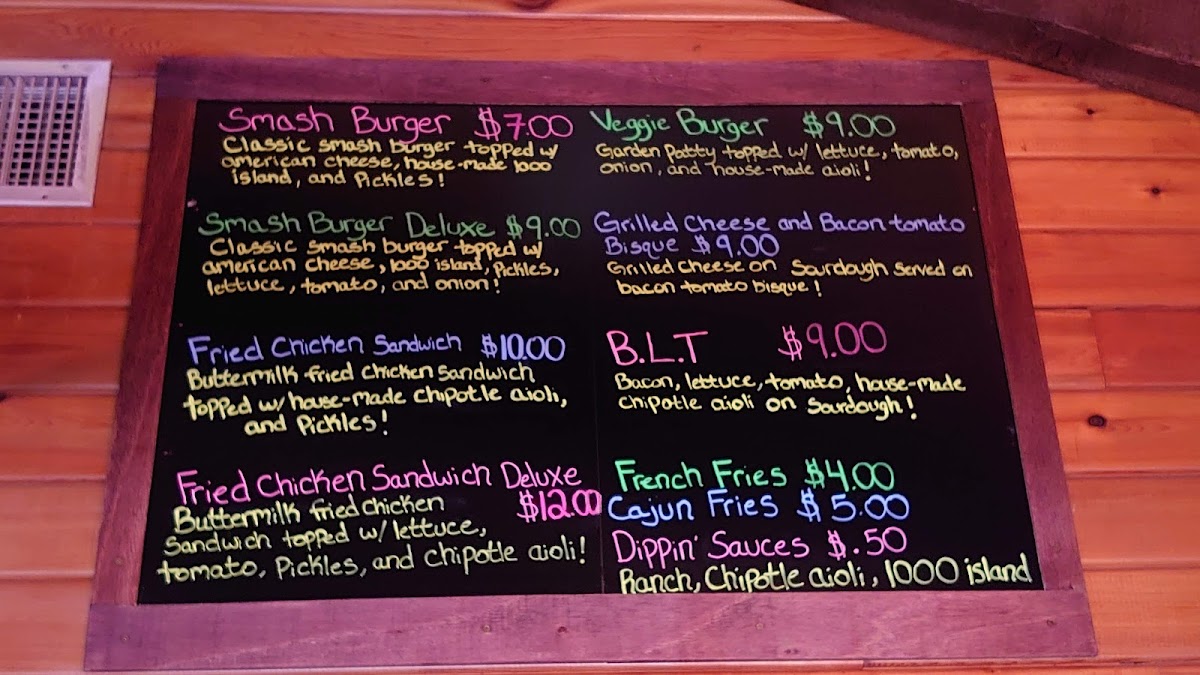 Smash Burger $7.00
Classic smash burger topped w/
american cheese, house-made 1000
island, and Pickles!
Smash Burger Deluxe $9.00
Classic smash burger topped w/
american cheese, 1000 island, Pickles,
lettuce, tomato, and onion!
Fried Chicken Sandwich $10.00
Buttermilk fried chicken sandwich
topped w/ house-made chipotle aioli,
and Pickles!
Fried Chicken Sandwich Deluxe
$12.00
Buttermilk fried chicken
sandwich topped w/ lettuce,
tomato, Pickles, and chipotle aioli!
Veggie Burger $9.00
Garden Patty topped w/ lettuce, tomato,
onion, and house-made aioli!
Grilled Cheese and Bacon tomato
Bisque $9.00
Grilled cheese on Sourdough served on
bacon tomato bisque!
B.L.T $9.00
Bacon, lettuce, tomato, house-made
chipotle aioli on Sourdough!
French Fries $4.00
Cajun Fries $5.00
Dippin' Sauces $.50
Ranch, Chipotle aioli, 1000 island